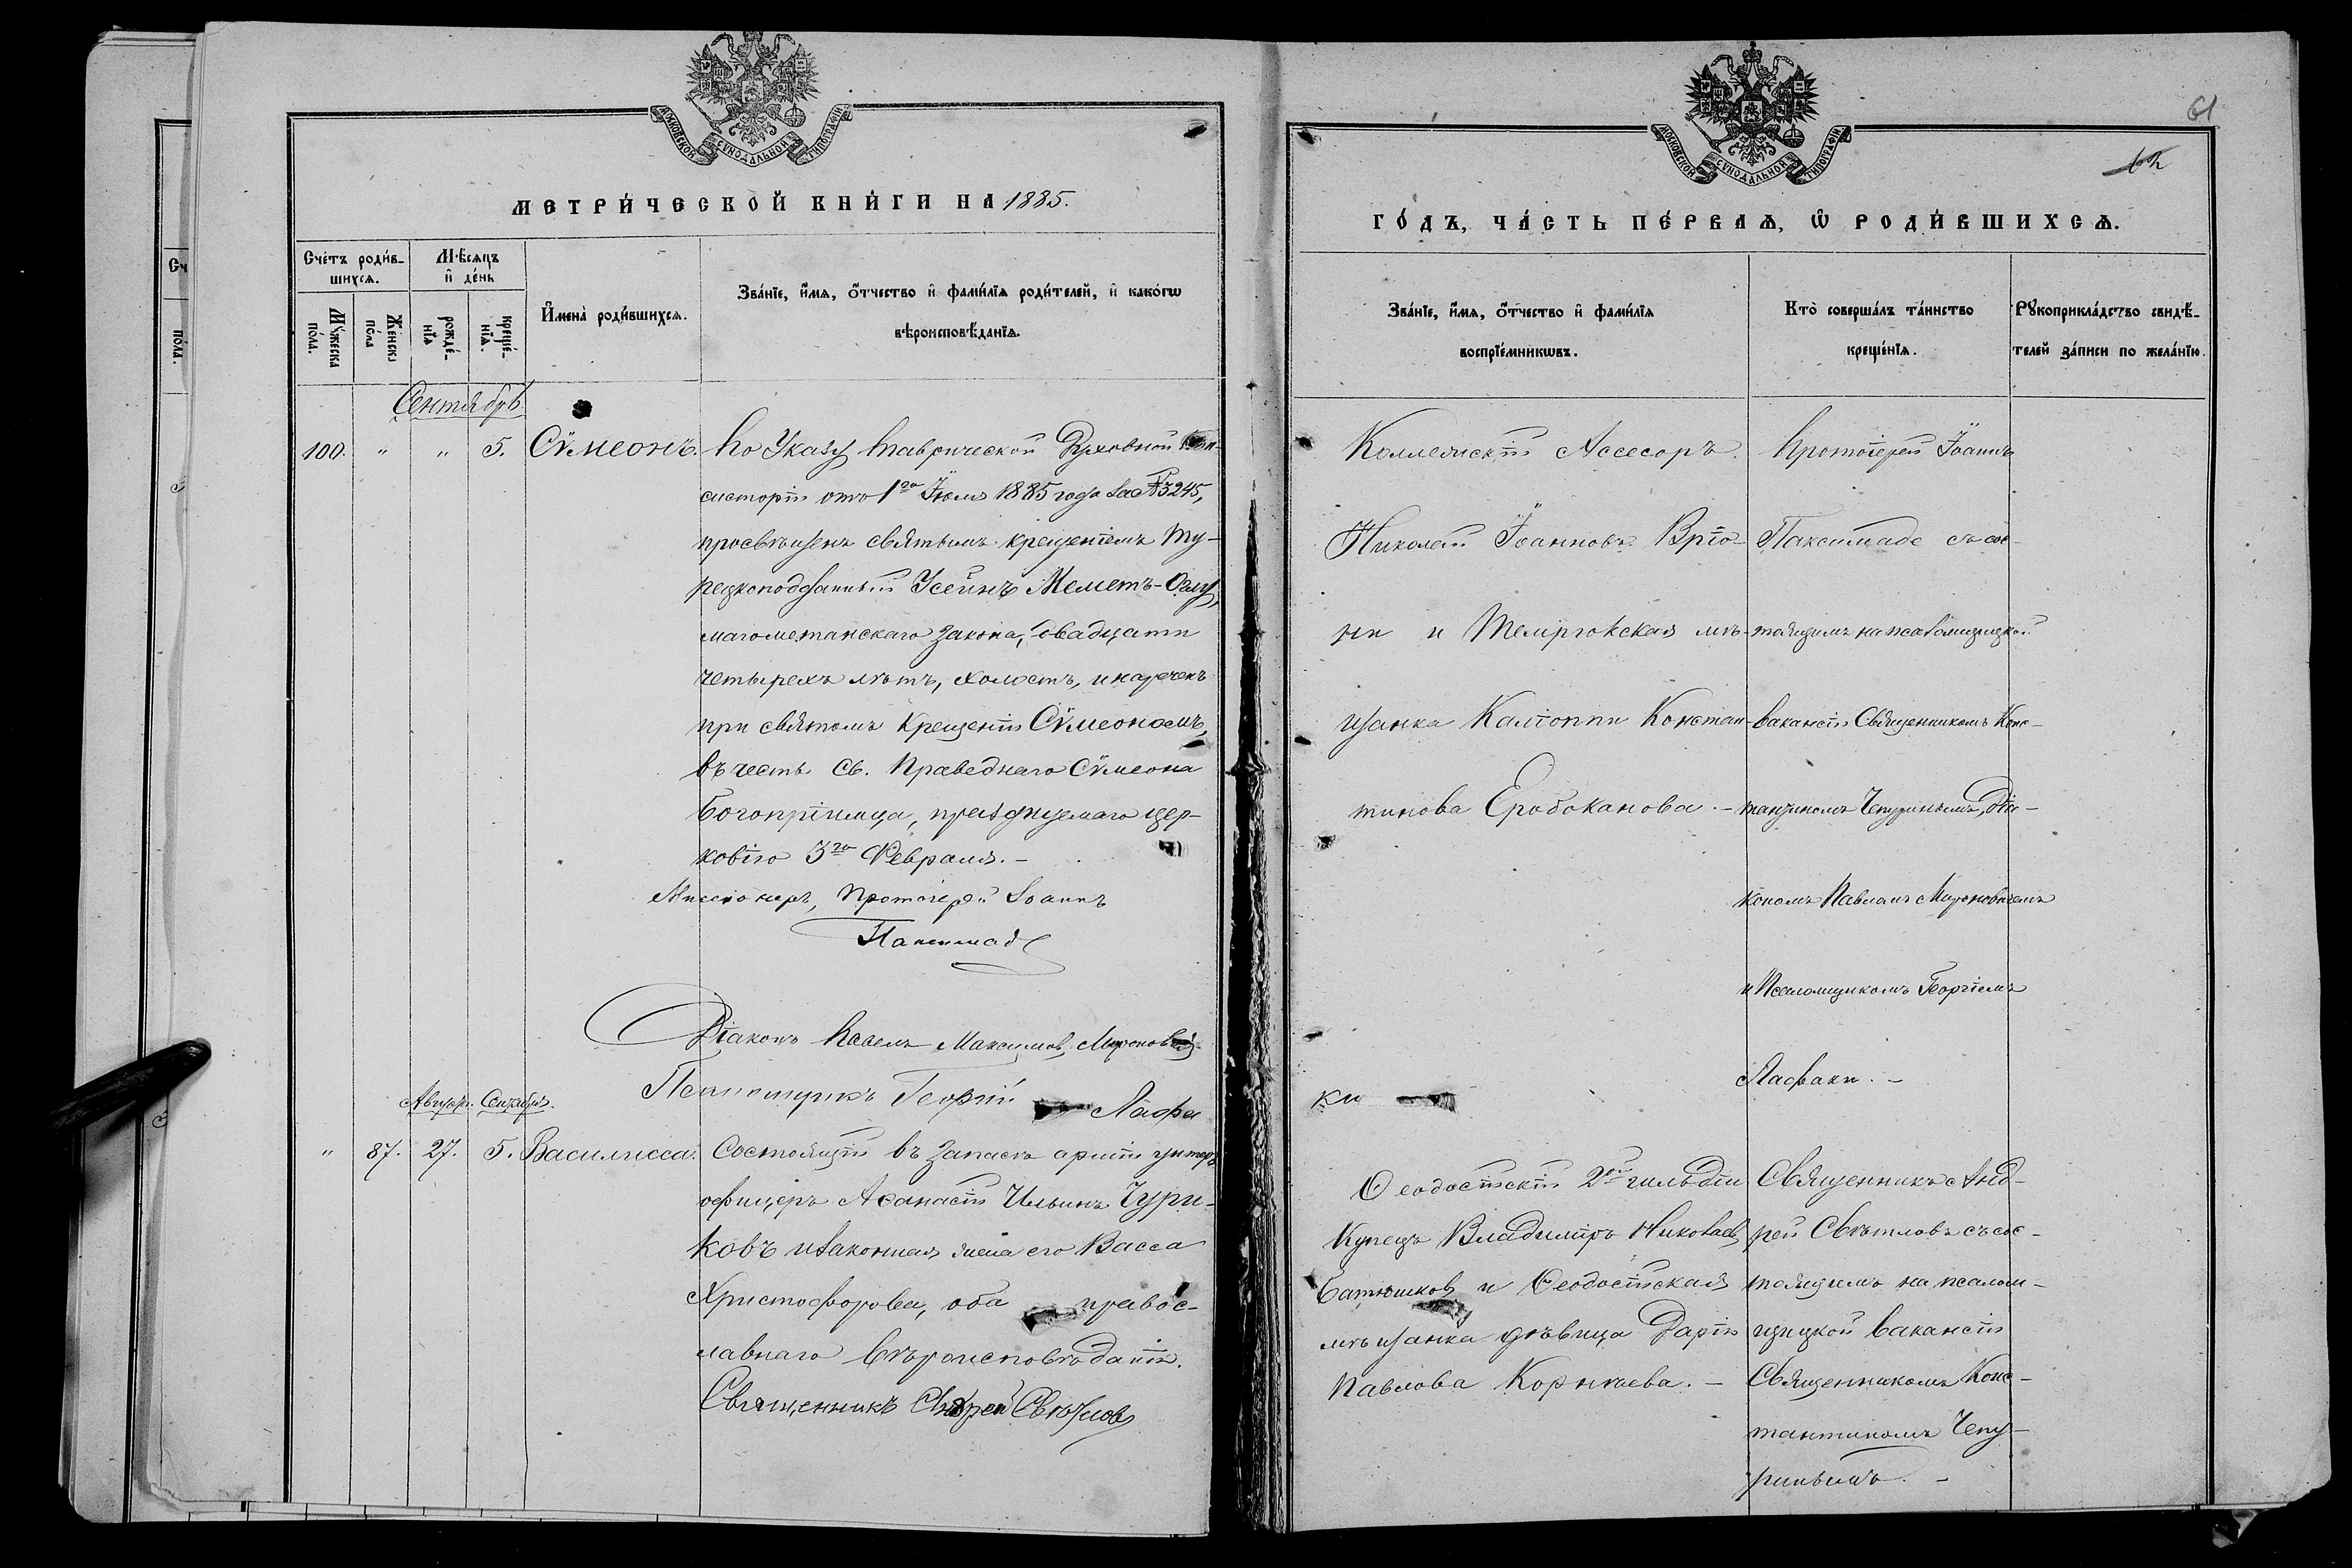 МОСКОВСКОЙ СѴНОДАЛЬНОЙ ТИПОГРАФІИ
МЕТРИ́ЧЕСКОЙ КНИ́ГИ НА 1885.
Сче́тъ роди́в-
шихсѧ.
Мꙋ́жеска
по́ла.
Же́нска
по́ла
Мѣ́сѧцъ
и҆ де́нь
рожде́-
нїѧ
креще́-
нїѧ.
И҆мена̀ роди́вшихсѧ.
Зва́нїе, и҆́мѧ, ѻ҆́тчество и҆ фами́лїѧ роди́телей, и҆ како́гѡ
вѣроисповѣ́данїѧ.
Сентябрь
100. " " 5. Сѵмеонъ.
По Указу Таврической Духовной Кон-
систоріи отъ 1го Іюля 1885 года за №3245,
просвѣщенъ святымъ крещеніемъ Ту-
рецкоподданный Усеинъ Меметъ-Оглу,
магометанскаго закона, двадцати
четырехъ лѣтъ, холостъ, и нареченъ
при святомъ Крещеніи Сѵмеономъ,
въ честь св. Праведнаго Сѵмеона
Богопріимца, празднуемаго цер-
ковію 3го Февраля.-
Миссіонеръ, Протоіерей Іоаннъ
Паксимаде
Діаконъ Павелъ Максимов. Мироновичъ
Псаломщикъ Георгій Лафа
Августъ. Сентябрь.
" 87. 27. 5. Василисса.
Состоящій въ запасѣ арміи унтеръ
офицеръ Аѳанасій Ильинъ Чури-
ковъ и законная жена его Васса
Христофорова, оба правос-
лавнаго вѣроисповѣданія.
Священникъ Андрей Свѣтловъ
61
62
МОСКОВСКОЙ СѴНОДАЛЬНОЙ ТИПОГРАФІИ
ГО́ДЪ, ЧА́СТЬ ПЕ́РВАѦ, Ѡ҆ РОДИ́ВШИХСѦ.
Зва́нїе, и҆́мѧ, ѻ҆́тчество и҆ фами́лїѧ
воспрїе́мникѡвъ.
Кто̀ соверша́лъ та́инство
креще́нїѧ.
Рꙋкоприкла́дство свидѣ́-
телей за́писи по жела́нїю.
Коллежскій Ассесоръ
Николай Іоанновъ Вріо-
ни и Темрюкская мѣ-
щанка Каліопи Констан-
тинова Еробоканова.-
Протоіерей Іоаннъ
Паксимаде съ сос-
тоящимъ на псаломщицкой
вакансіи Священникомъ Конс-
тантиномъ Чепуринымъ, Діа-
кономъ Павломъ Мироновичемъ
и Псаломщикомъ Георгіемъ
Лафаки.-
ки
Ѳеодосійскій 2й гильдіи
Купецъ Владиміръ Николаев
Батюшков и Ѳеодосійская
мѣщанка дѣвица Дарія
Павлова Корнѣева.-
Священникъ Анд-
рей Свѣтловъ съ сос-
тоящимъ на псалом-
щицкой вакансіи
Священникомъ Конс-
тантиномъ Чепу-
ринымъ.-